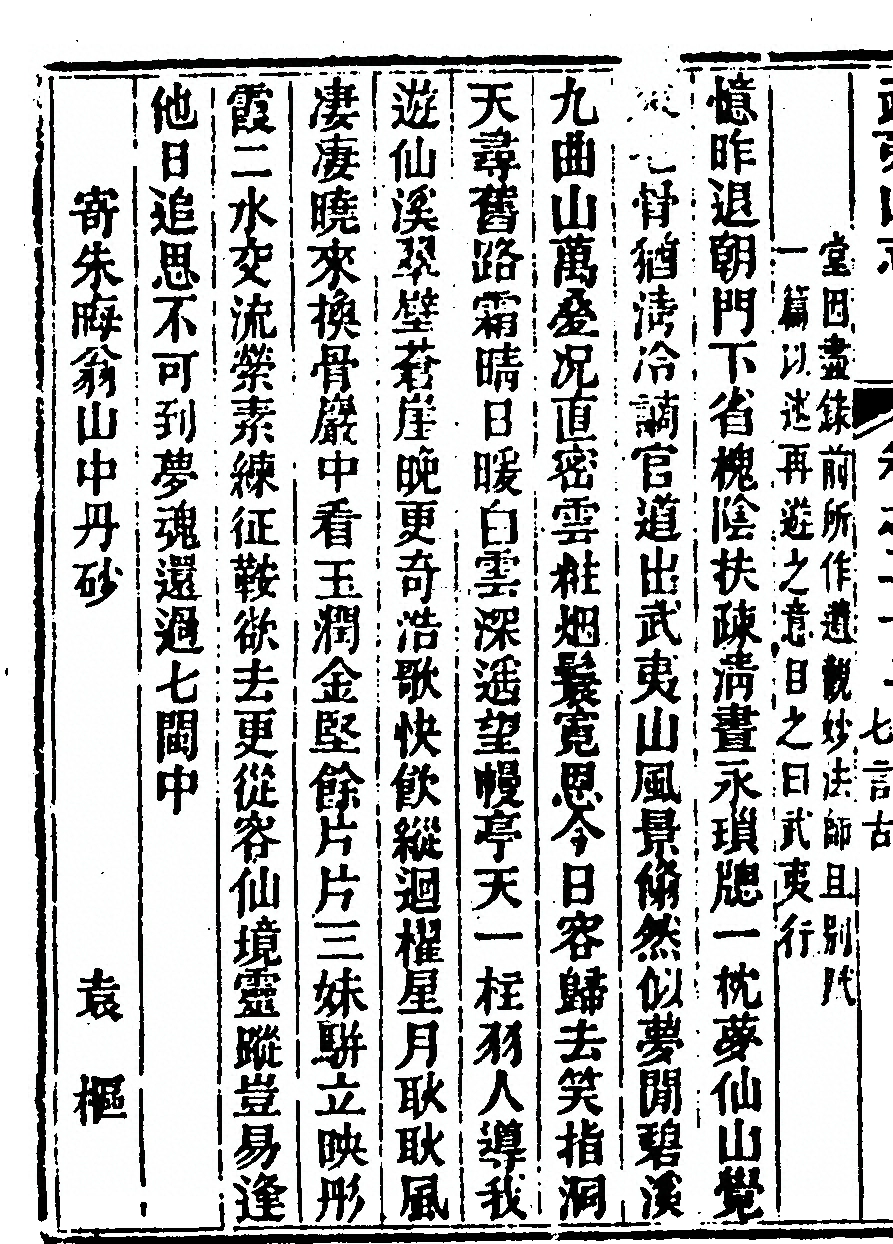 七言古
堂因盡錄前所作遺觀妙法師且別代
一篇以述再遊之意目之曰武夷行
憶昨退朝門下省槐陰扶疎清晝永瑣牕一枕夢仙山覺
骨猶清冷謫官道出武夷山風景翛然似夢閒碧溪
九曲山萬疊况直密雲粧烟鬟寬恩今日容歸去笑指洞
天尋舊路霜晴日暖白雲深遥望幔亭天一柱羽人導我
遊仙溪翠壁蒼崖晚更奇浩歌快飲縱迴櫂星月耿耿風
凄凄曉來換骨巖中看玉潤金堅餘片片三妹駢立映彤
霞二水交流縈素練征鞍欲去更從容仙境靈蹤豈易逢
他日追思不可到夢魂還過七閩中
寄朱晦翁山中丹砂 袁樞